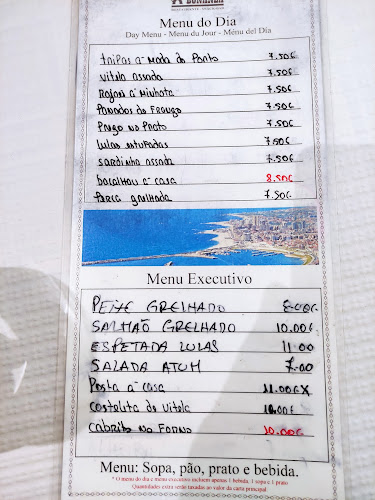 BONANZA
Menu do Dia
Day Menu - Menu du Jour - Ménu del Día
tripas á moda do Porto 7.50€
Vitela assada 7.50€
Rojões á Minhota 7.50€
Panados de Frango 7.50€
Prego no Prato 7.50€
Lulas estufadas 7.50€
Sardinha assada 7.50€
bacalhau á casa 8.50€
grelhada 7.50€
Menu Executivo
PEIXE GRELHADO 8.00€
SALMÃO GRELHADO 10.00€
ESPETADA LULAS 11.00
SALADA ATUM 7.00
Posta á casa 11.00€
Costeleta de Vitela
Cabrito no Forno 10.00€
Menu: Sopa, pão, prato e bebida.
* O menu do dia e menu executivo incluem apenas 1 bebida, 1 sopa e 1 prato
Quantidades extra serão taxadas ao valor da carta principal